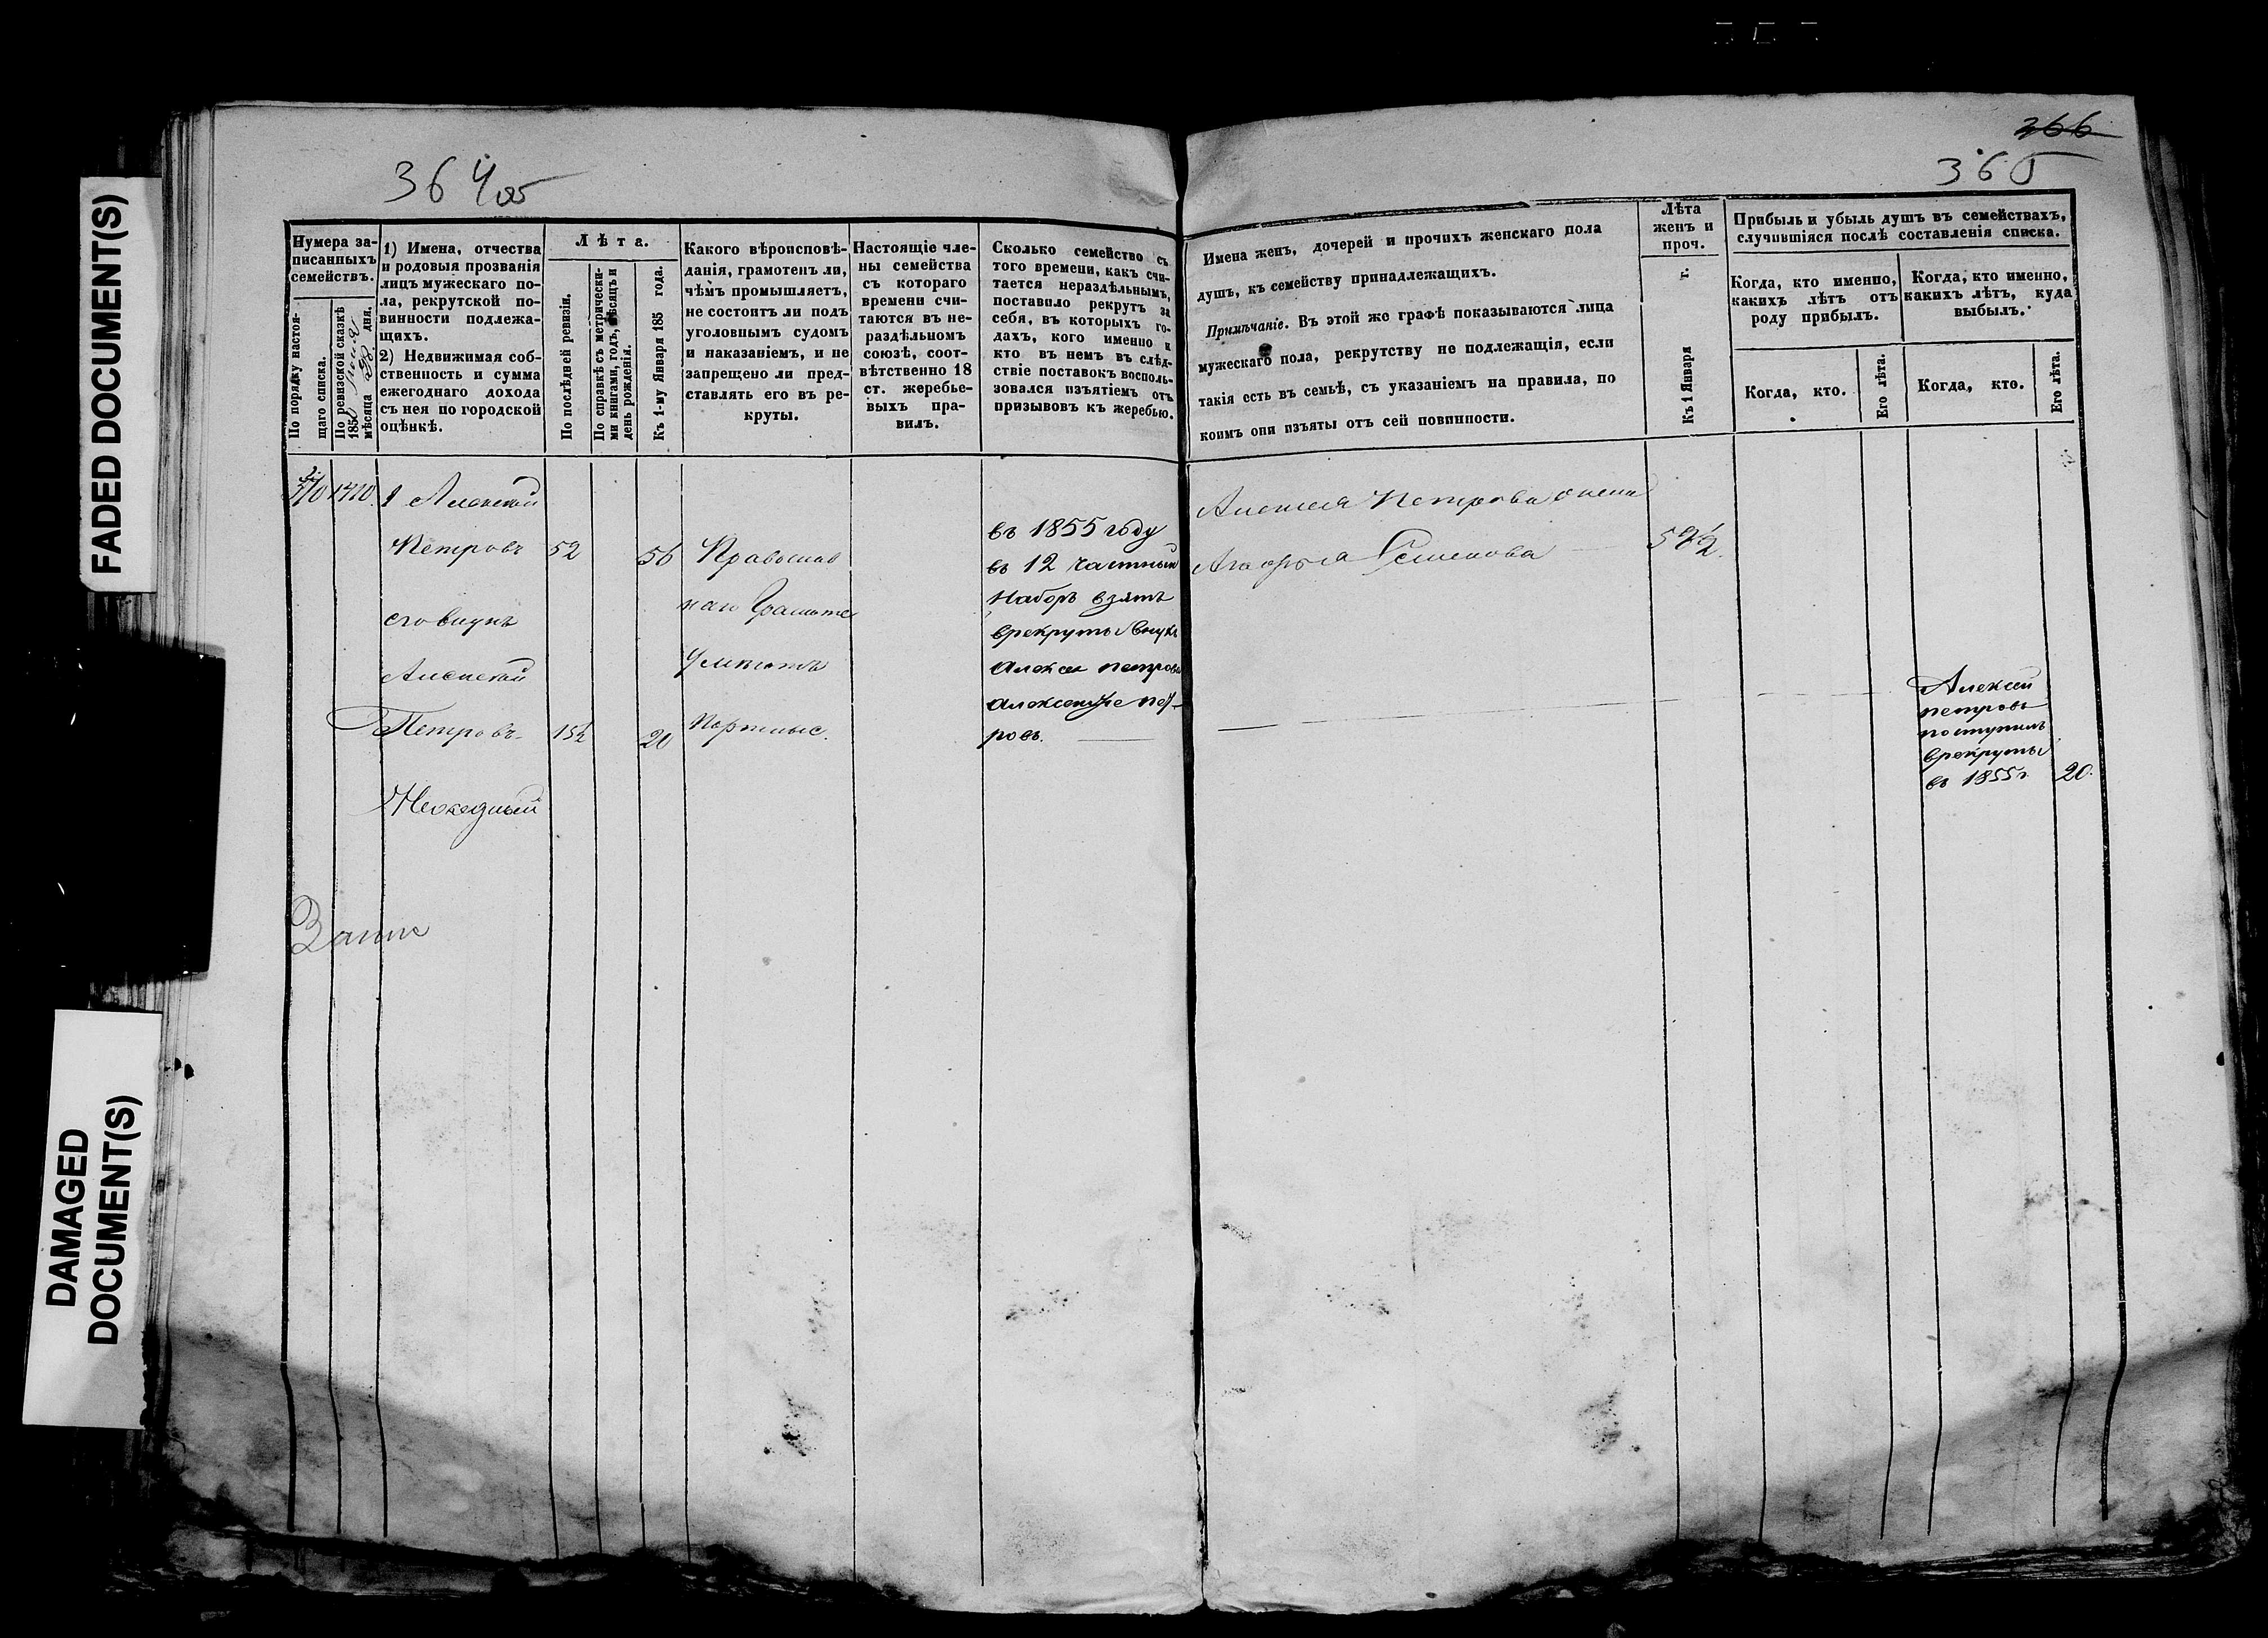 FADED DOCUMENT(S)
DAMAGED
DOCUMENT(S)
364
Нумера за-
писанныхъ
семействъ.
По порядку настоя-
щаго списка.
По ревизской сказкѣ
185
мѣсяца 28 дня.
1) Имена, отчества
и родовыя прозванія
лицъ мужескаго по-
ла, рекрутской по-
винности подлежа-
щихъ.
2) Недвижимая соб-
ственность и сумма
ежегоднаго дохода
съ нея по городской
оцѣнкѣ.
Лѣта.
По послѣдней ревизіи.
По справкѣ съ метрически-
ми книгами, годъ, мѣсяцъ и
день рожденія.
Къ 1-му Января 185 года.
Какого вѣроисповѣ-
данія, грамотенъ ли,
чѣмъ промышляетъ,
не состоитъ ли подъ
уголовнымъ судомъ
и наказаніемъ, и не
запрещено ли пред-
ставлять его въ ре-
круты.
Настоящіе чле-
ны семейства
съ котораго
времени счи-
таются въ не-
раздѣльномъ
союзѣ, соот-
вѣтственно 18
ст. жеребье-
выхъ пра-
вилъ.
Сколько семейство съ
того времени, какъ счи-
тается нераздѣльнымъ,
поставило рекрутъ за
себя, въ которыхъ го-
дахъ, кого именно и
кто въ немъ въ слѣд-
ствіе поставокъ восполь-
зовался изъятіемъ отъ
призывовъ къ жеребью.
1710
1 Алексѣй
Петровъ 52 56 Православ
его внукъ
Алексѣй
Петровъ 15½ 20
въ 1855 году
въ 12 частный
Наборъ взятъ
врекруты внукъ
Алексея петрова
Алексей пет-
ровъ.
366
365
Имена женъ, дочерей и прочихъ женскаго пола
душъ, къ семейству принадлежащихъ.
Примѣчаніе. Въ этой же графѣ показываются лица
мужескаго пола, рекрутству не подлежащія, если
такія есть въ семьѣ, съ указаніемъ на правила, по
коимъ они изъяты отъ сей повинности.
Лѣта
женъ и
проч.
Къ 1 Января г.
Прибыль и убыль душъ въ семействахъ,
случившіяся послѣ составленія списка.
Когда, кто именно,
какихъ лѣтъ отъ
роду прибылъ.
Когда, кто именно,
какихъ лѣтъ, куда
выбылъ.
Когда, кто.
Его лѣта.
Когда, кто.
Его лѣта.
Алексея Петрова жена
Семенова
Алексей
петровъ
поступилъ
врекруты
въ 1855 г. 20.